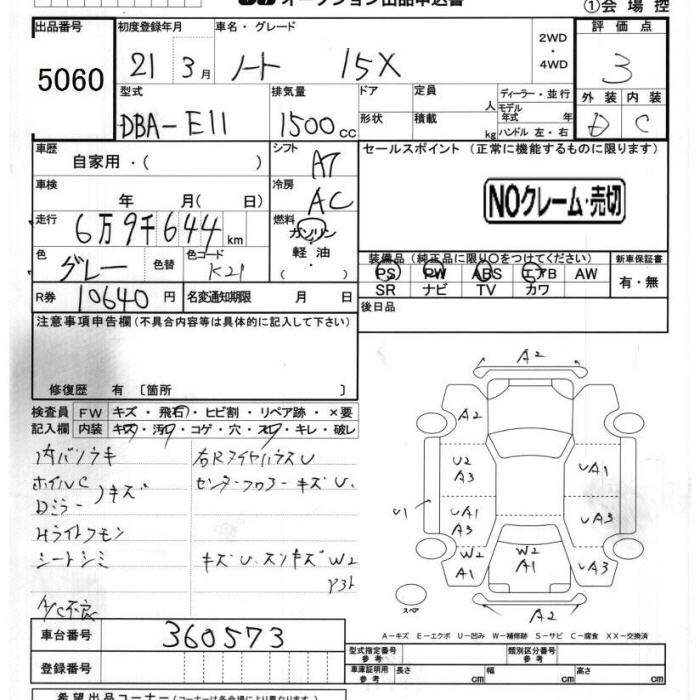 オークション出品申込書 ①会場控
出品番号 5060
初度登録年月 21 3月
車名・グレード ノート 15X
2WD・4WD
評価点 3
型式 DBA-E11
排気量 1500cc
ドア 形状
定員 人
積載 kg
ディーラー・並行
モデル年式 年
ハンドル 左・右
外装 D 内装 C
車歴 自家用・( )
シフト AT
車検 年 月( 日)
冷房 AC
走行 6万9千644km
燃料 ガソリン・軽油・( )
色 グレー 色替 色コード K21
R券 10640円 名変通知期限 月 日
セールスポイント(正常に機能するものに限ります)
NOクレーム・売切
装備品(純正品に限り○をつけてください) 新車保証書
PS PW ABS エアB AW 有・無
SR ナビ TV カワ
後日品
注意事項申告欄(不具合内容等は具体的に記入して下さい)
修復歴 有 〔箇所 〕
検査員 FW キズ・飛石・ヒビ割・リペア跡・×要
記入欄 内装 キズ・汚レ・コゲ・穴・スレ・キレ・破レ
ホイルC
Dミラー キズ
Hライトクモリ
シートシミ
A/C不良
センターフロアー キズU.
キズU.スリキズ W2
A2
A2
U2 A3
UA1
U1
UA1 A3
UA3
W2 A1
W2 A1
UA3
スペア
A2
A-キズ E-エクボ U-凹み W-補修跡 S-サビ C-腐食 XX-交換済
車台番号 360573
登録番号
型式指定番号 参考 類別区分番号 参考
車庫証明用 参考 長さ cm 幅 cm 高さ cm
希望出品コーナー(コーナーは各会場により異なります)